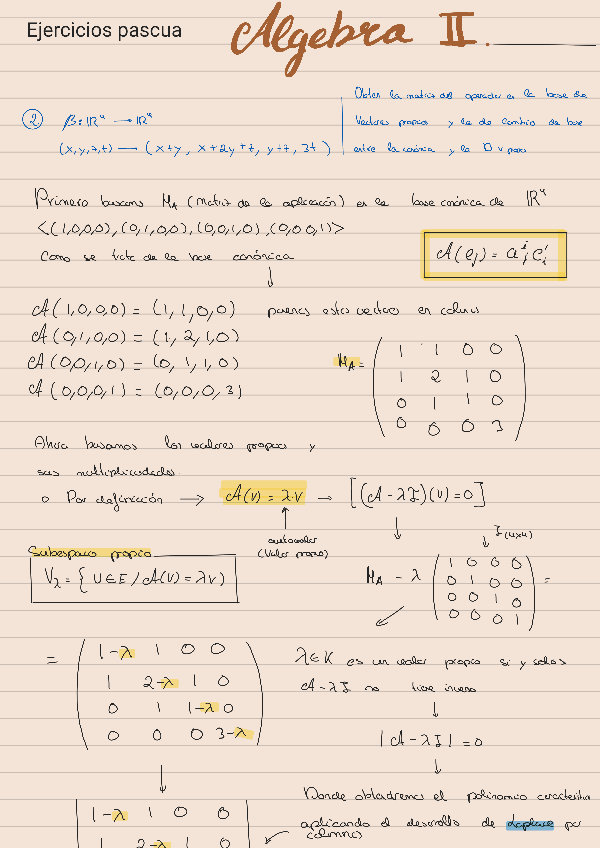 Ejercicios pascua
Algebra II.
② β: ℝ⁴ → ℝ⁴
(x,y,z,t) — (x+y, x+2y+z, y+z, 3t)
Obten la matriz del operador en la base de
vectores propios y la de cambio de base
entre la canónica y la D v. propios
Primero buscamos M_A (matriz de la aplicación) en la base canónica de ℝ⁴
<(1,0,0,0), (0,1,0,0), (0,0,1,0), (0,0,0,1)>
Como se trata de la base canónica
A(e_j) = a^i_j e'_i
A(1,0,0,0) = (1,1,0,0) ponemos estos vectores en columna
A(0,1,0,0) = (1,2,1,0)
A(0,0,1,0) = (0,1,1,0)
A(0,0,0,1) = (0,0,0,3)
M_A =
1 1 0 0
1 2 1 0
0 1 1 0
0 0 0 3
Ahora buscamos los valores propios y
sus multiplicidades
o Por definición → A(v) = λ·v → [(A-λI)(v)=0]
autovalor
(Valor propio)
Subespacio propio
V_λ = {v∈E / A(v) = λv}
I (4x4)
M_A - λ
1 0 0 0
0 1 0 0
0 0 1 0
0 0 0 1
=
=
1-λ 1 0 0
1 2-λ 1 0
0 1 1-λ 0
0 0 0 3-λ
λ∈K es un valor propio si y solo si
A-λI no tiene inversa
|A-λI| = 0
Donde obtendremos el polinomio característico
aplicando el desarrollo de Laplace por
columnas
1-λ 1 0 0
1 2-λ 1 0